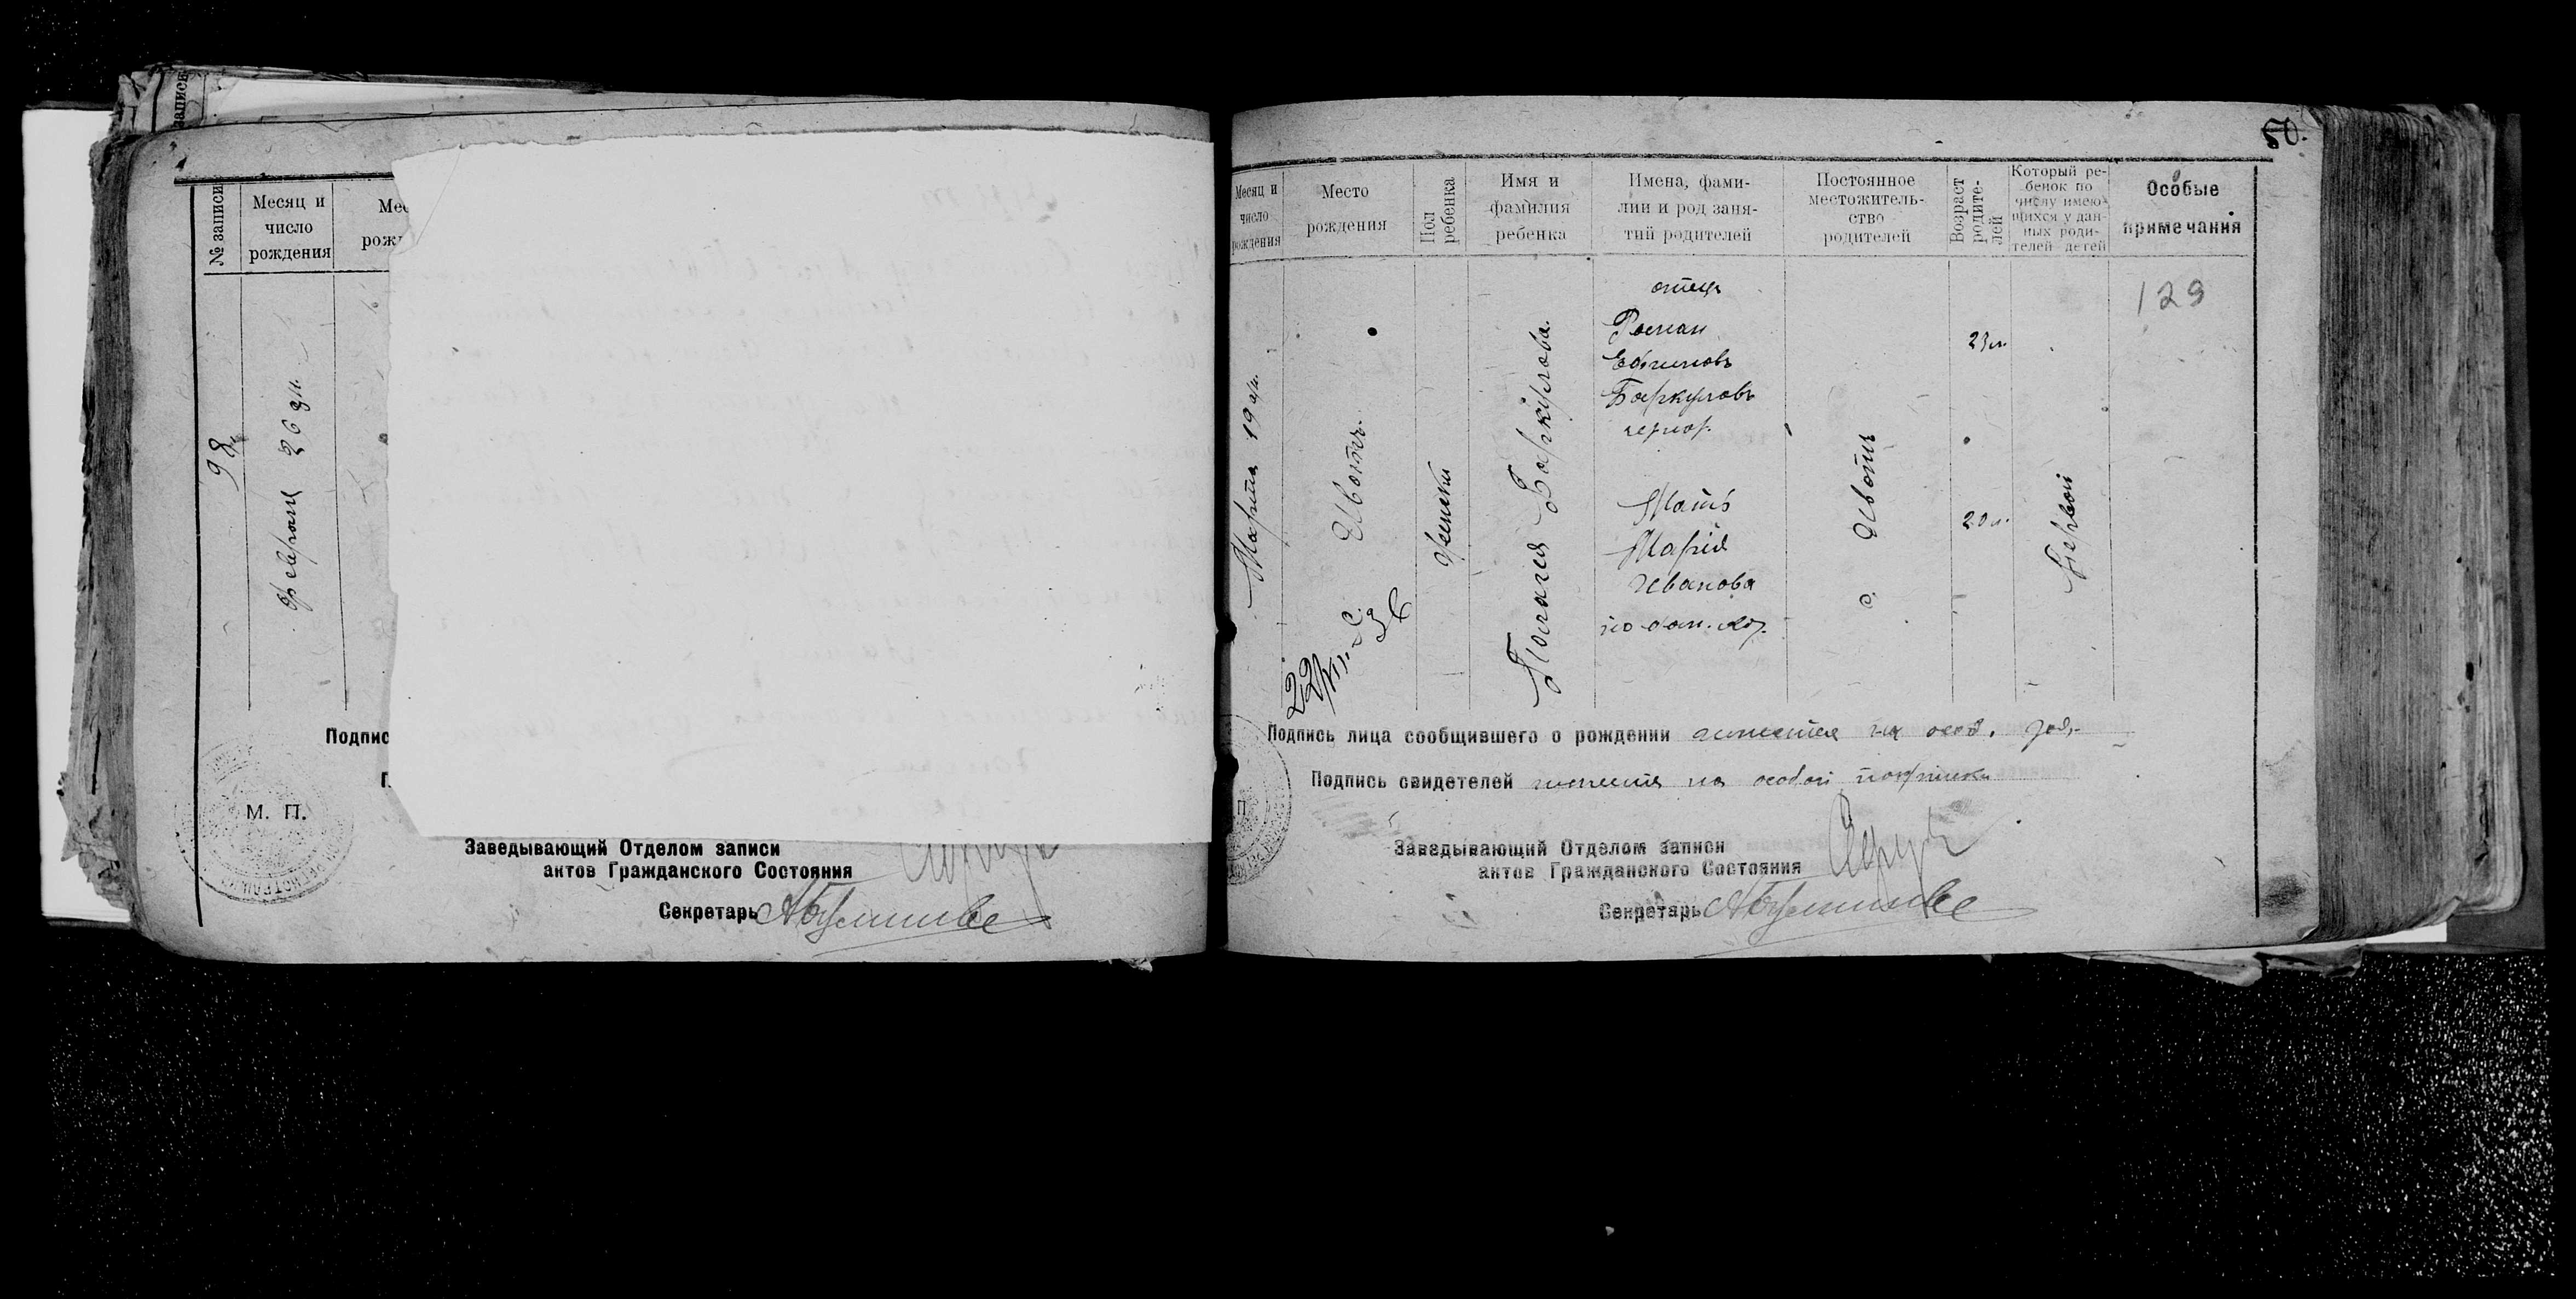 записи
№ записи
Месяц и
число
рождения
98
Февраля 26 дн.
Подпис
М. П.
Заведывающий Отделом записи
актов Гражданского Состояния
Секретарь
50.
Месяц и
число
рождения
Место
рождения
Пол
ребенка
Имя и
фамилия
ребенка
Имена, фами-
лии и род заня-
тий родителей
Постоянное
местожитель-
ство
родителей
Возраст
родите-
лей
Который ре-
бенок по
числу имею-
щихся у дан-
ных роди-
телей детей
Особые
примечания
Марта 19 дн.
с. Ивотъ.
женски
Пелагея Баркулова.
отецъ
Роман
Ефимовъ
Баркуловъ
чернор.
Мать
Марія
Иванова
по дом. хоз.
с. Ивотъ
23 л.
20 л.
Первой
129
Подпись лица сообщившего о рождении имеется на особ.
Подпись свидетелей имеется на особой подписки
П
Заведывающий Отделом записи
актов Гражданского Состояния
Секретарь